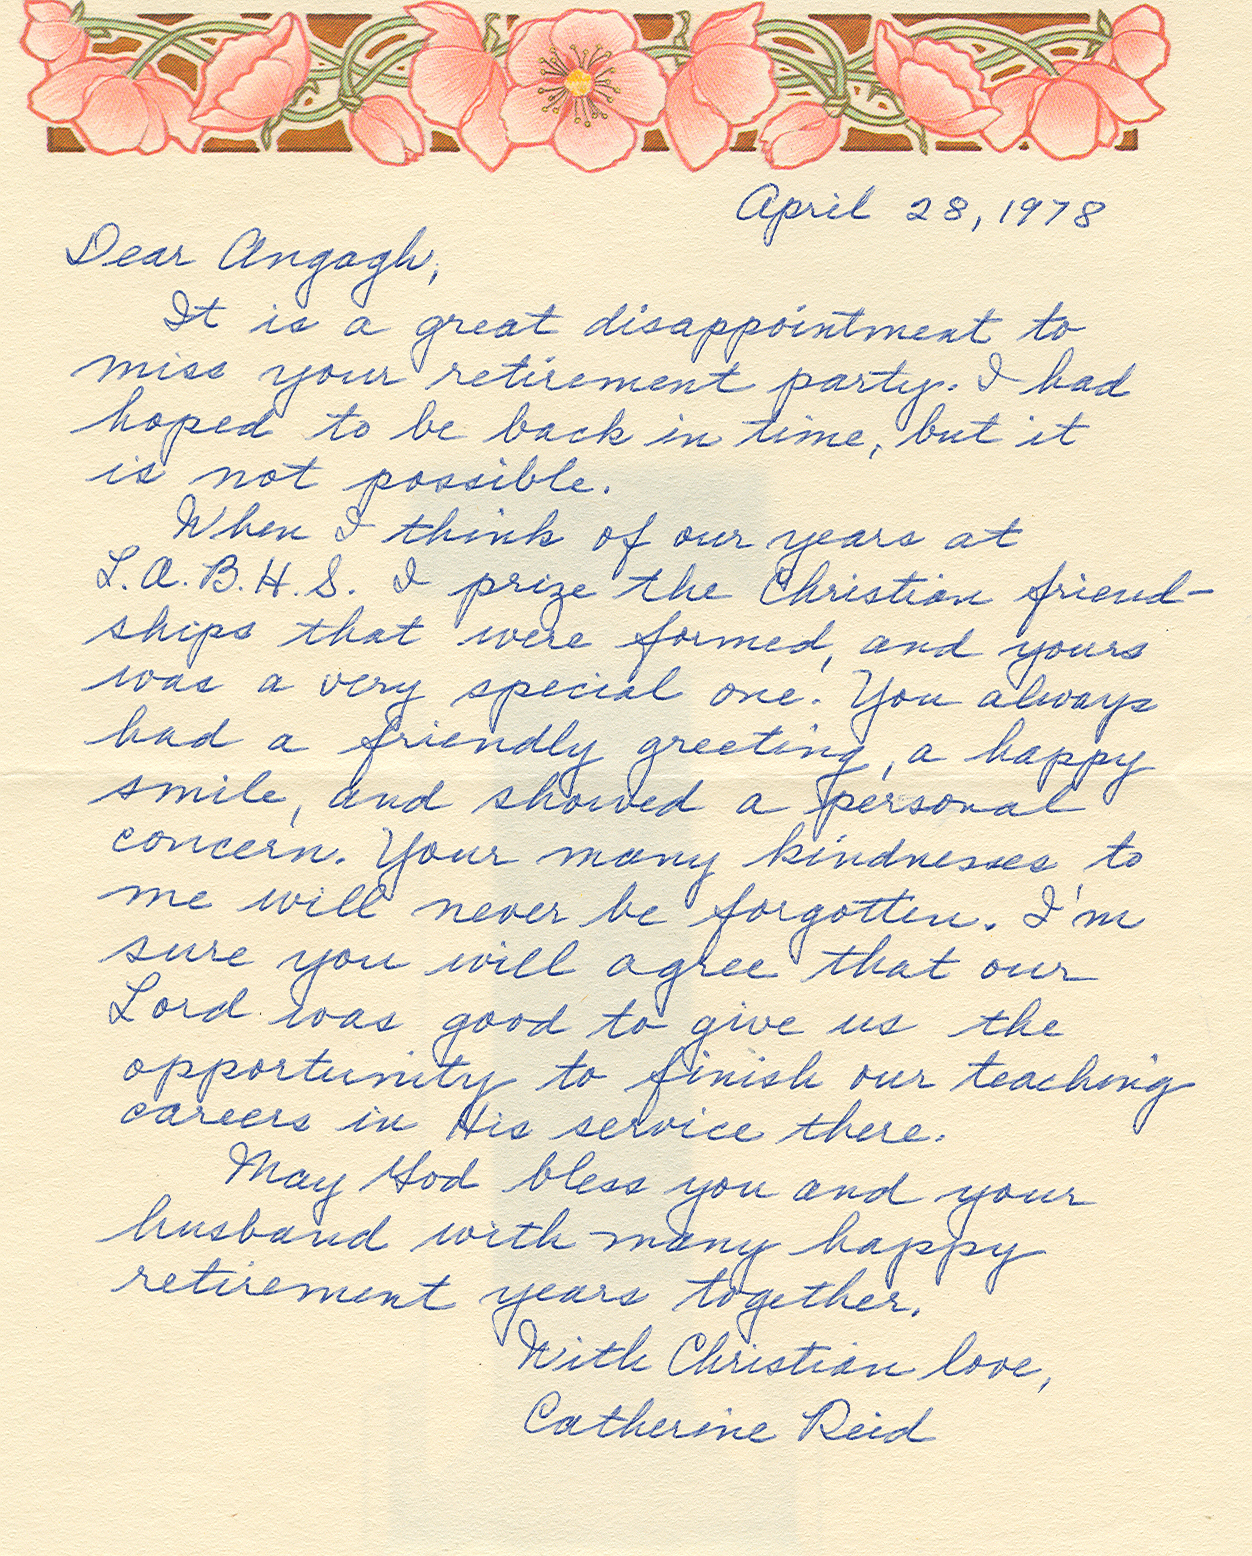 April 28, 1978
Dear Angagh,
It is a great disappointment to
miss your retirement party. I had
hoped to be back in time, but it
is not possible.
When I think of our years at
L.A.B.H.S. I prize the Christian friend-
ships that were formed, and yours
was a very special one. You always
had a friendly greeting, a happy
smile, and showed a personal
concern. Your many kindnesses to
me will never be forgotten. I'm
sure you will agree that our
Lord was good to give us the
opportunity to finish our teaching
careers in His service there.
May God bless you and your
husband with many happy
retirement years together.
With Christian love,
Catherine Reid